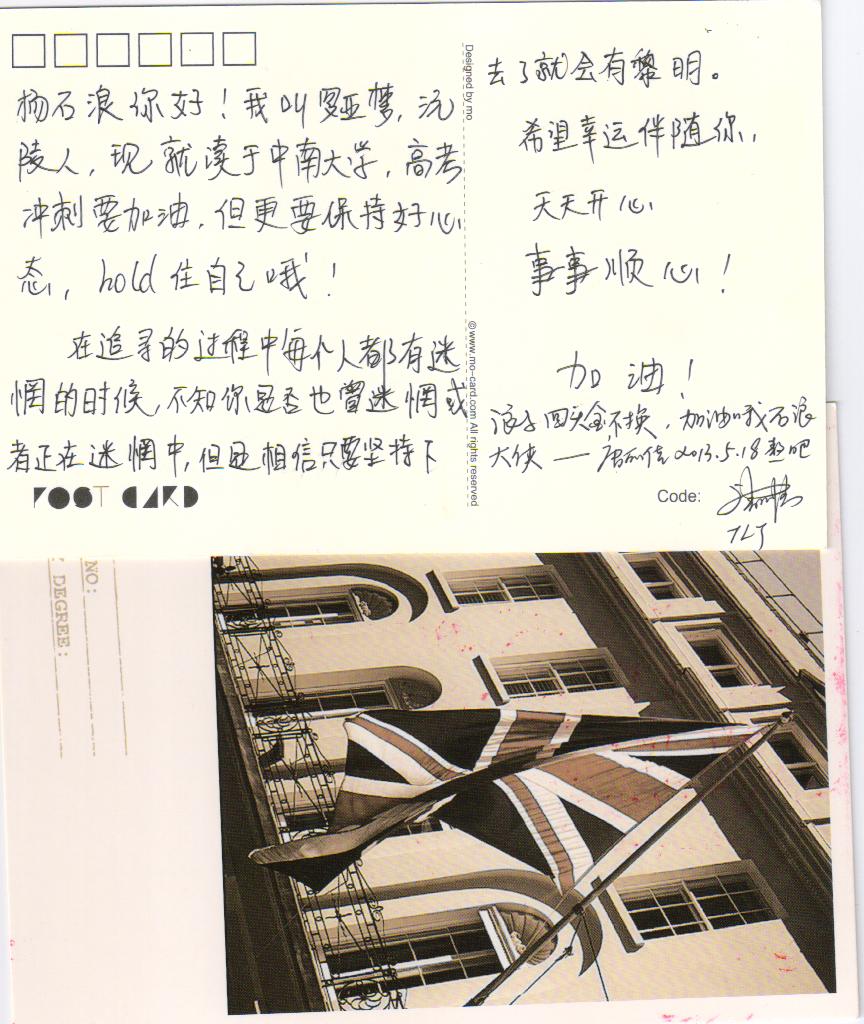 杨石浪你好！我叫罗亚梦，沅
陵人，现就读于中南大学，高考
冲刺要加油，但更要保持好心
态，hold住自己哦！
在追寻的过程中每个人都有迷
惘的时候，不知你是否也曾迷惘或
者正在迷惘中，但是相信只要坚持下
POST CARD
Designed by mo
© www.mo-card.com All rights reserved
去了就会有黎明。
希望幸运伴随你，
天天开心
事事顺心！
加油！
浪子回头金不换，加油哦石浪
大侠——唐 2013.5.18
Code:
TLJ
NO:
DEGREE: